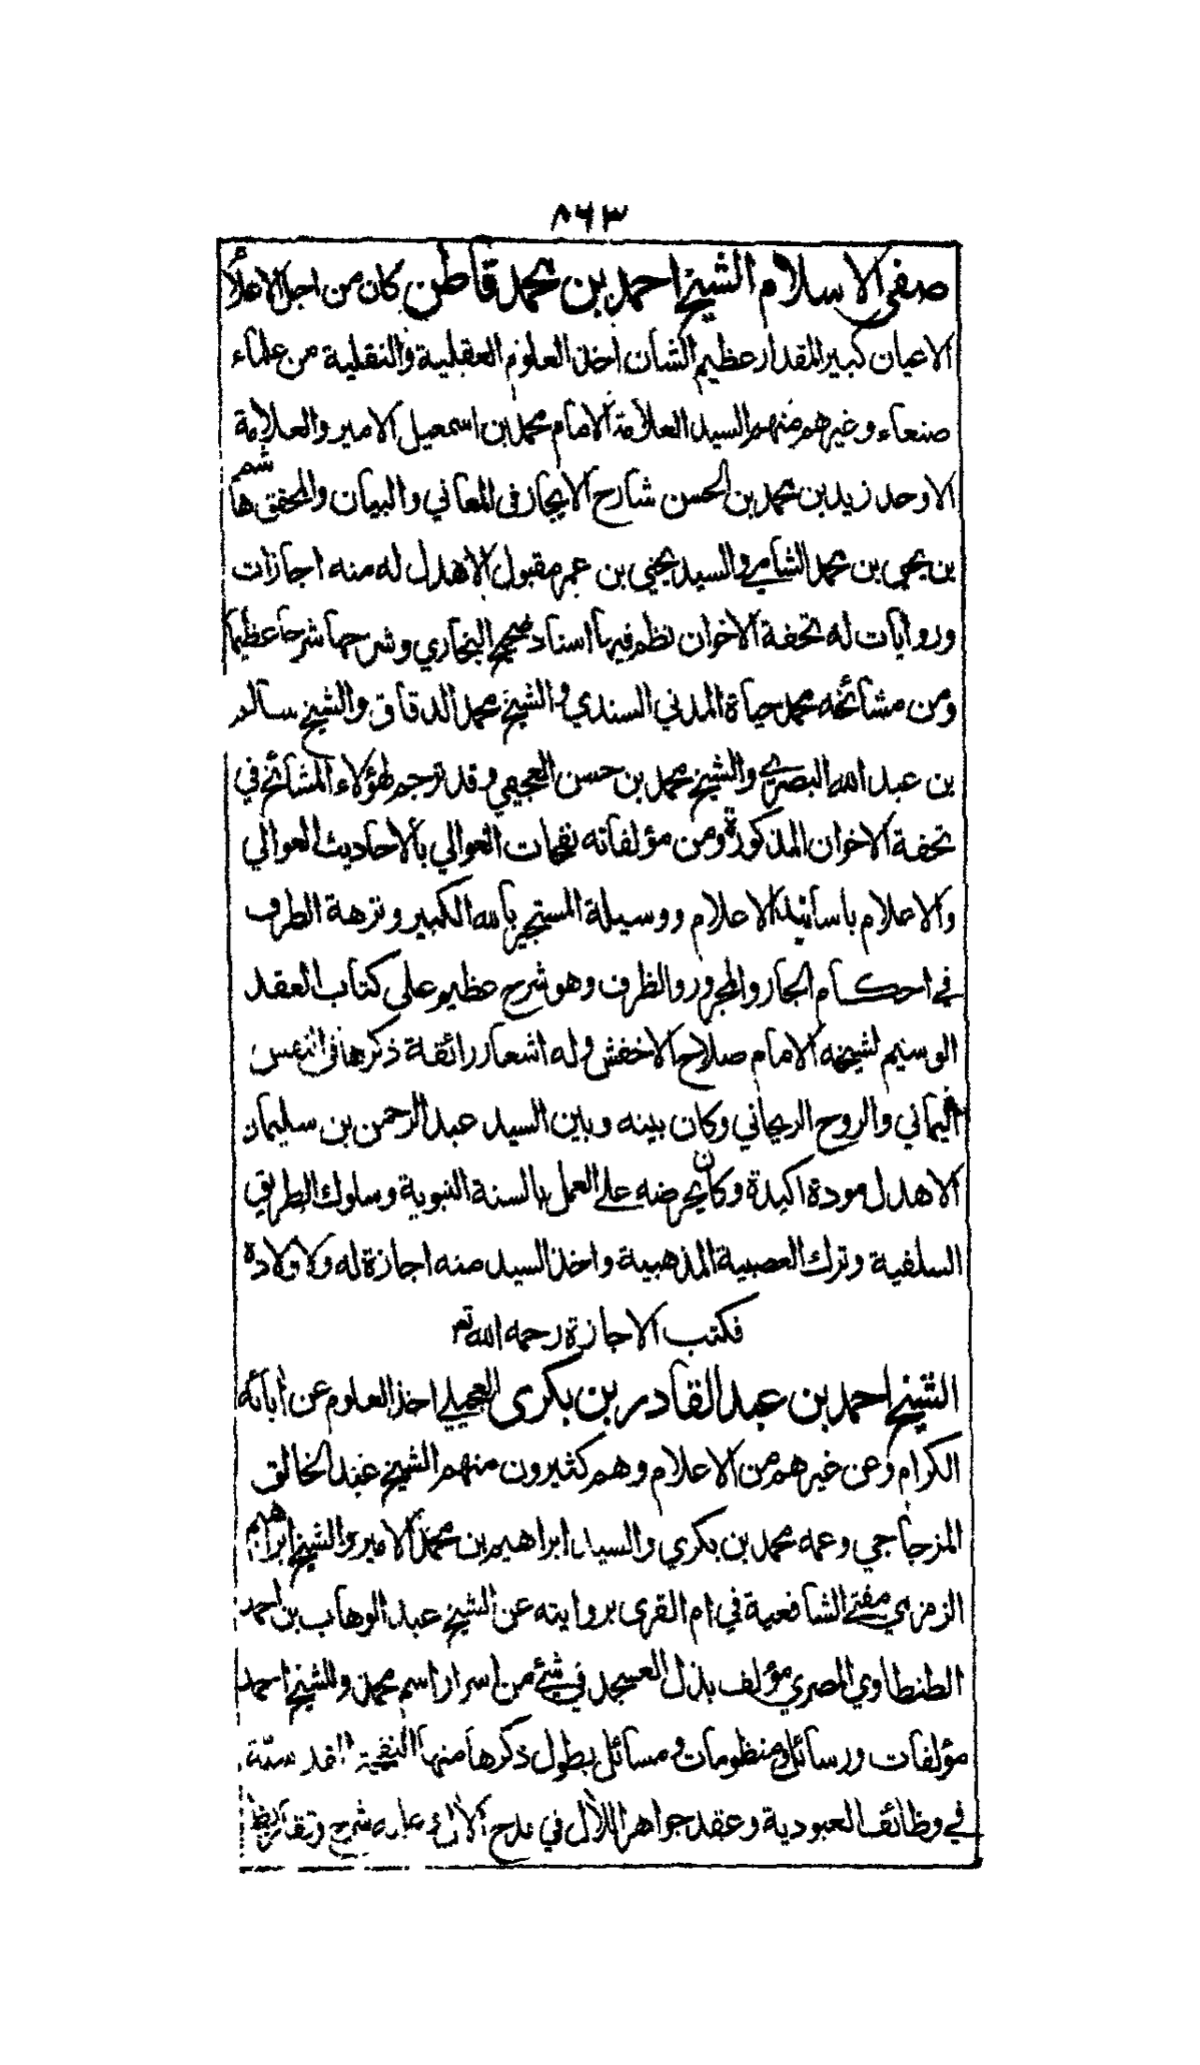 ٨٦٣
صفي الاسلام الشيخ احمد بن محمد قاطن كان من اجل الاعلام
الاعيان كبير المقدار عظيم الشان اخذ العلوم العقلية والنقلية من علماء
صنعاء وغيرهم منهم السيد العلامة الامام محمد بن اسمعيل الامير والعلامة
الاوحد زيد بن محمد بن الحسن شارح الايجاز في المعاني والبيان والمحقق هاشم
بن يحيى بن محمد الشامي والسيد يحيى بن عمر مقبول الاهدل له منه اجازات
وروايات له تحفة الاخوان نظم فيها اسناد صحيح البخاري وشرحها شرحا عظيما
ومن مشائخه محمد حياة المدني السندي والشيخ محمد الدقاق والشيخ سالم
بن عبد الله البصري والشيخ محمد بن حسن العجيمي وقد ترجم لهؤلاء المشائخ في
تحفة الاخوان المذكورة ومن مؤلفاته نفحات الغوالي بالاحاديث العوالي
والاعلام باسانيد الاعلام ووسيلة المستجير بالله الكبير ونزهة الطرف
في احكام الجار والمجرور والظرف وهو شرح عظيم على كتاب العقد
الوسيم لشيخه الامام صلاح الاخفش وله اشعار رائقة ذكرها في النفس
اليماني والروح الريحاني وكان بينه وبين السيد عبد الرحمن بن سليمان
الاهدل مودة اكيدة وكان يحرضه على العمل بالسنة النبوية وسلوك الطريق
السلفية وترك العصبية المذهبية واخذ السيد منه اجازة له ولاولاده
فكتب الاجازة رحمه الله تع
الشيخ احمد بن عبد القادر بن بكرى العجيلي اخذ العلوم عن ابائه
الكرام وعن غيرهم من الاعلام وهم كثيرون منهم الشيخ عبد الخالق
المزجاجي وعمه محمد بن بكري والسيد ابراهيم بن محمد الامير والشيخ ابراهيم
الزمزمي مفتي الشافعية في ام القرى بروايته عن الشيخ عبد الوهاب بن احمد
الطنطاوي المصري مؤلف بذل العسجد في شئ من اسرار اسم محمد وللشيخ احمد
مؤلفات ورسائل ومنظومات ومسائل يطول ذكرها منها
في وظائف العبودية وعقد جواهر اللآل في مدح الآل وعليه شرح وتقاريظ